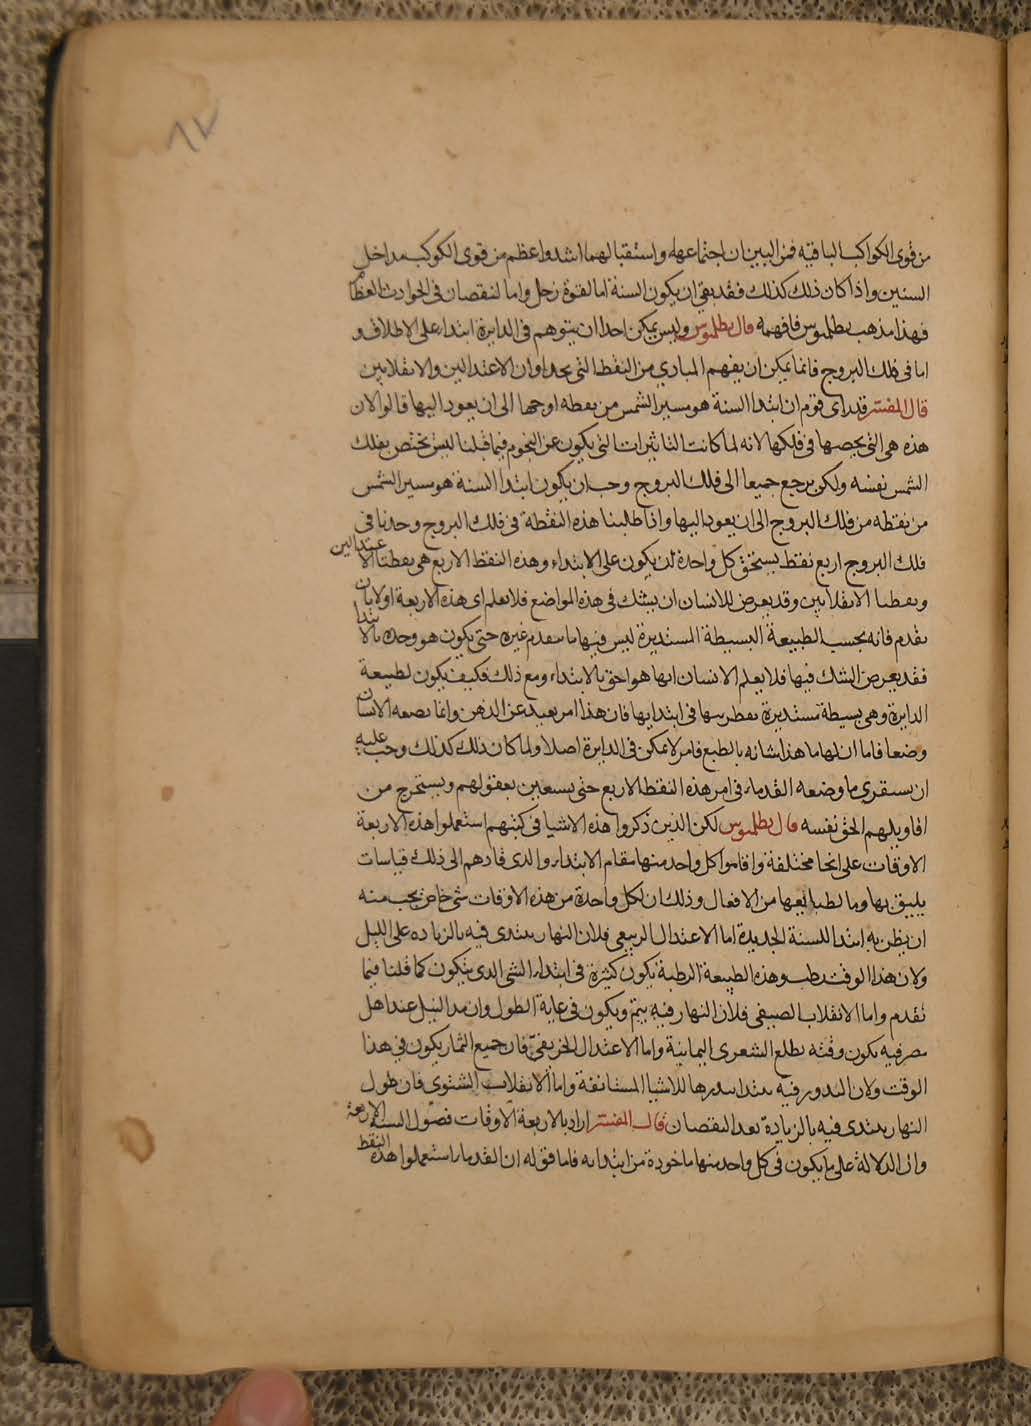 ٦٧
من قوى الكواكب الباقية فمن البين ان اجتماعهما واستقبالهما اشد واعظم من قوى الكوكب مداخل
السنين واذا كان ذلك كذلك فقد بقي ان يكون السنة اما لقوة زحل واما لنقصان في الحوادث العظا
فهذا مذهب بطلميوس فافهمه قال بطلميوس وليس يمكن احدا ان يتوهم في الدايرة ابتداء على الاطلاق و
اما في فلك البروج فانما يمكن ان يفهم المبادي من النقط التي يحد اوان الاعتدالين والانقلابين
قال المفسر قد راى قوم ان ابتدا السنة هو مسير الشمس من نقطه اوجها الى ان يعود اليها قالوا لان
هذه هي التي يخصها في فلكها لانه لما كانت التاثيرات التي يكون عن النجوم فيما قبلنا ليس تختص بفلك
الشمس نفسه ولكن يرجع جميعا الى فلك البروج وجب ان يكون ابتدا السنة هو مسير الشمس
من نقطه من فلك البروج الى ان يعود اليها واذا طلبنا هذه النقطة في فلك البروج وجدنا في
فلك البروج اربع نقط يستحق كل واحدة ان يكون على الابتداء وهذه النقط الاربع هي نقطتا الاعتدالين
ونقطتا الانقلابين وقد يعرض للانسان ان يشك في هذه المواضع فلا يعلم اى هذه الاربعة اولا بان
يقدم فانه بحسب الطبيعة البسيطة المستديرة ليس فيها ما يتقدم غيره حتى يكون هو وحده بالابتدا
فقد يعرض الشك فيها فلا يعلم الانسان ايها هو احق بالابتداء ومع ذلك فكيف يكون لطبيعة
الدايرة وهي بسيطة مستديرة في ابتدايها فان هذا امر بعيد عن الذهن وانما يضعه الانسان
وضعا فاما ان لها ما هذا شانه بالطبع فامر لا يمكن في الدايرة اصلا ولما كان ذلك كذلك وجب عليه
ان يستقرى ما وضعه القدماء في امر هذه النقط الاربع حتى يستعين بعقولهم ويستخرج من
اقاويلهم الحق نفسه قال بطلميوس لكن الذين ذكروا هذه الاشيا في كتبهم استعملوا هذه الاربعة
الاوقات على انحا مختلفة واقاموا كل واحد منها مقام الابتداء والذى قادهم الى ذلك قياسات
يليق بها وما لطبايعها من الافعال وذلك ان لكل واحدة من هذه الاوقات شى خاص يجب منه
ان يظن به ابتدا للسنة الجديدة اما الاعتدال الربيعي فلان النهار يبتدى فيه بالزياده على الليل
ولان هذا الوقت رطب وهذه الطبيعة الرطبة يكون كثيرة في ابتداء الشى الذى يتكون كما قلنا فيما
تقدم واما الانقلاب الصيفي فلان النهار فيه يتم ويكون في غاية الطول وان مد النيل عند اهل
مصر فيه يكون وفيه يطلع الشعرى اليمانية واما الاعتدال الخريفي فان جميع الثمار يكون في هذا
الوقت ولان البذور فيه يبتدا ببذرها للاشيا المستانفة واما الانقلاب الشتوى فان طول
النهار يبتدى فيه بالزيادة بعد النقصان قال المفسر اراد بالاربعة الاوقات فصول السنة الاربعة
وان الدلالة على ما يكون في كل واحد منها ماخوذة من ابتدائه فاما قوله ان القدماء استعملوا هذه النقط